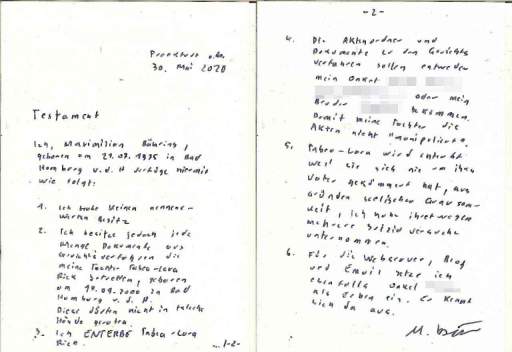 Frankfurt a.M.
30. Mai 2020
Testament
Ich, Maximilian Bähring,
geboren am 21.09.1975 in Bad
Homburg v.d.H verfüge hiermit
wie folgt:
1. Ich habe keinen nennens-
werten Besitz
2. Ich besitze jedoch jede
Menge Dokumente aus
Gerichtsverfahren die
meine Tochter
betreffen, geboren
am 2000 in Bad
Homburg v. d. H.
Diese dürfen nicht in falsche
Hände geraten.
3. Ich ENTERBE
../-2-
-2-
4. Die Aktenordner und
Dokumente zu den Gerichts
verfahren sollen entweder
mein Onkel
oder mein
Bruder bekommen.
Damit meine Tochter die
Akten nicht "manipuliert".
5. wird enterbt
weil sie sich nie um ihren
Vater gekümmert hat, aus
gründen seelischer Grausam-
keit, ich habe ihretwegen
mehrere Suizid versuche
unternommen.
6. Für die Webserver, Blog
und Email setze ich
ebenfalls Onkel
als Erben ein. Er kennt
sich da aus.